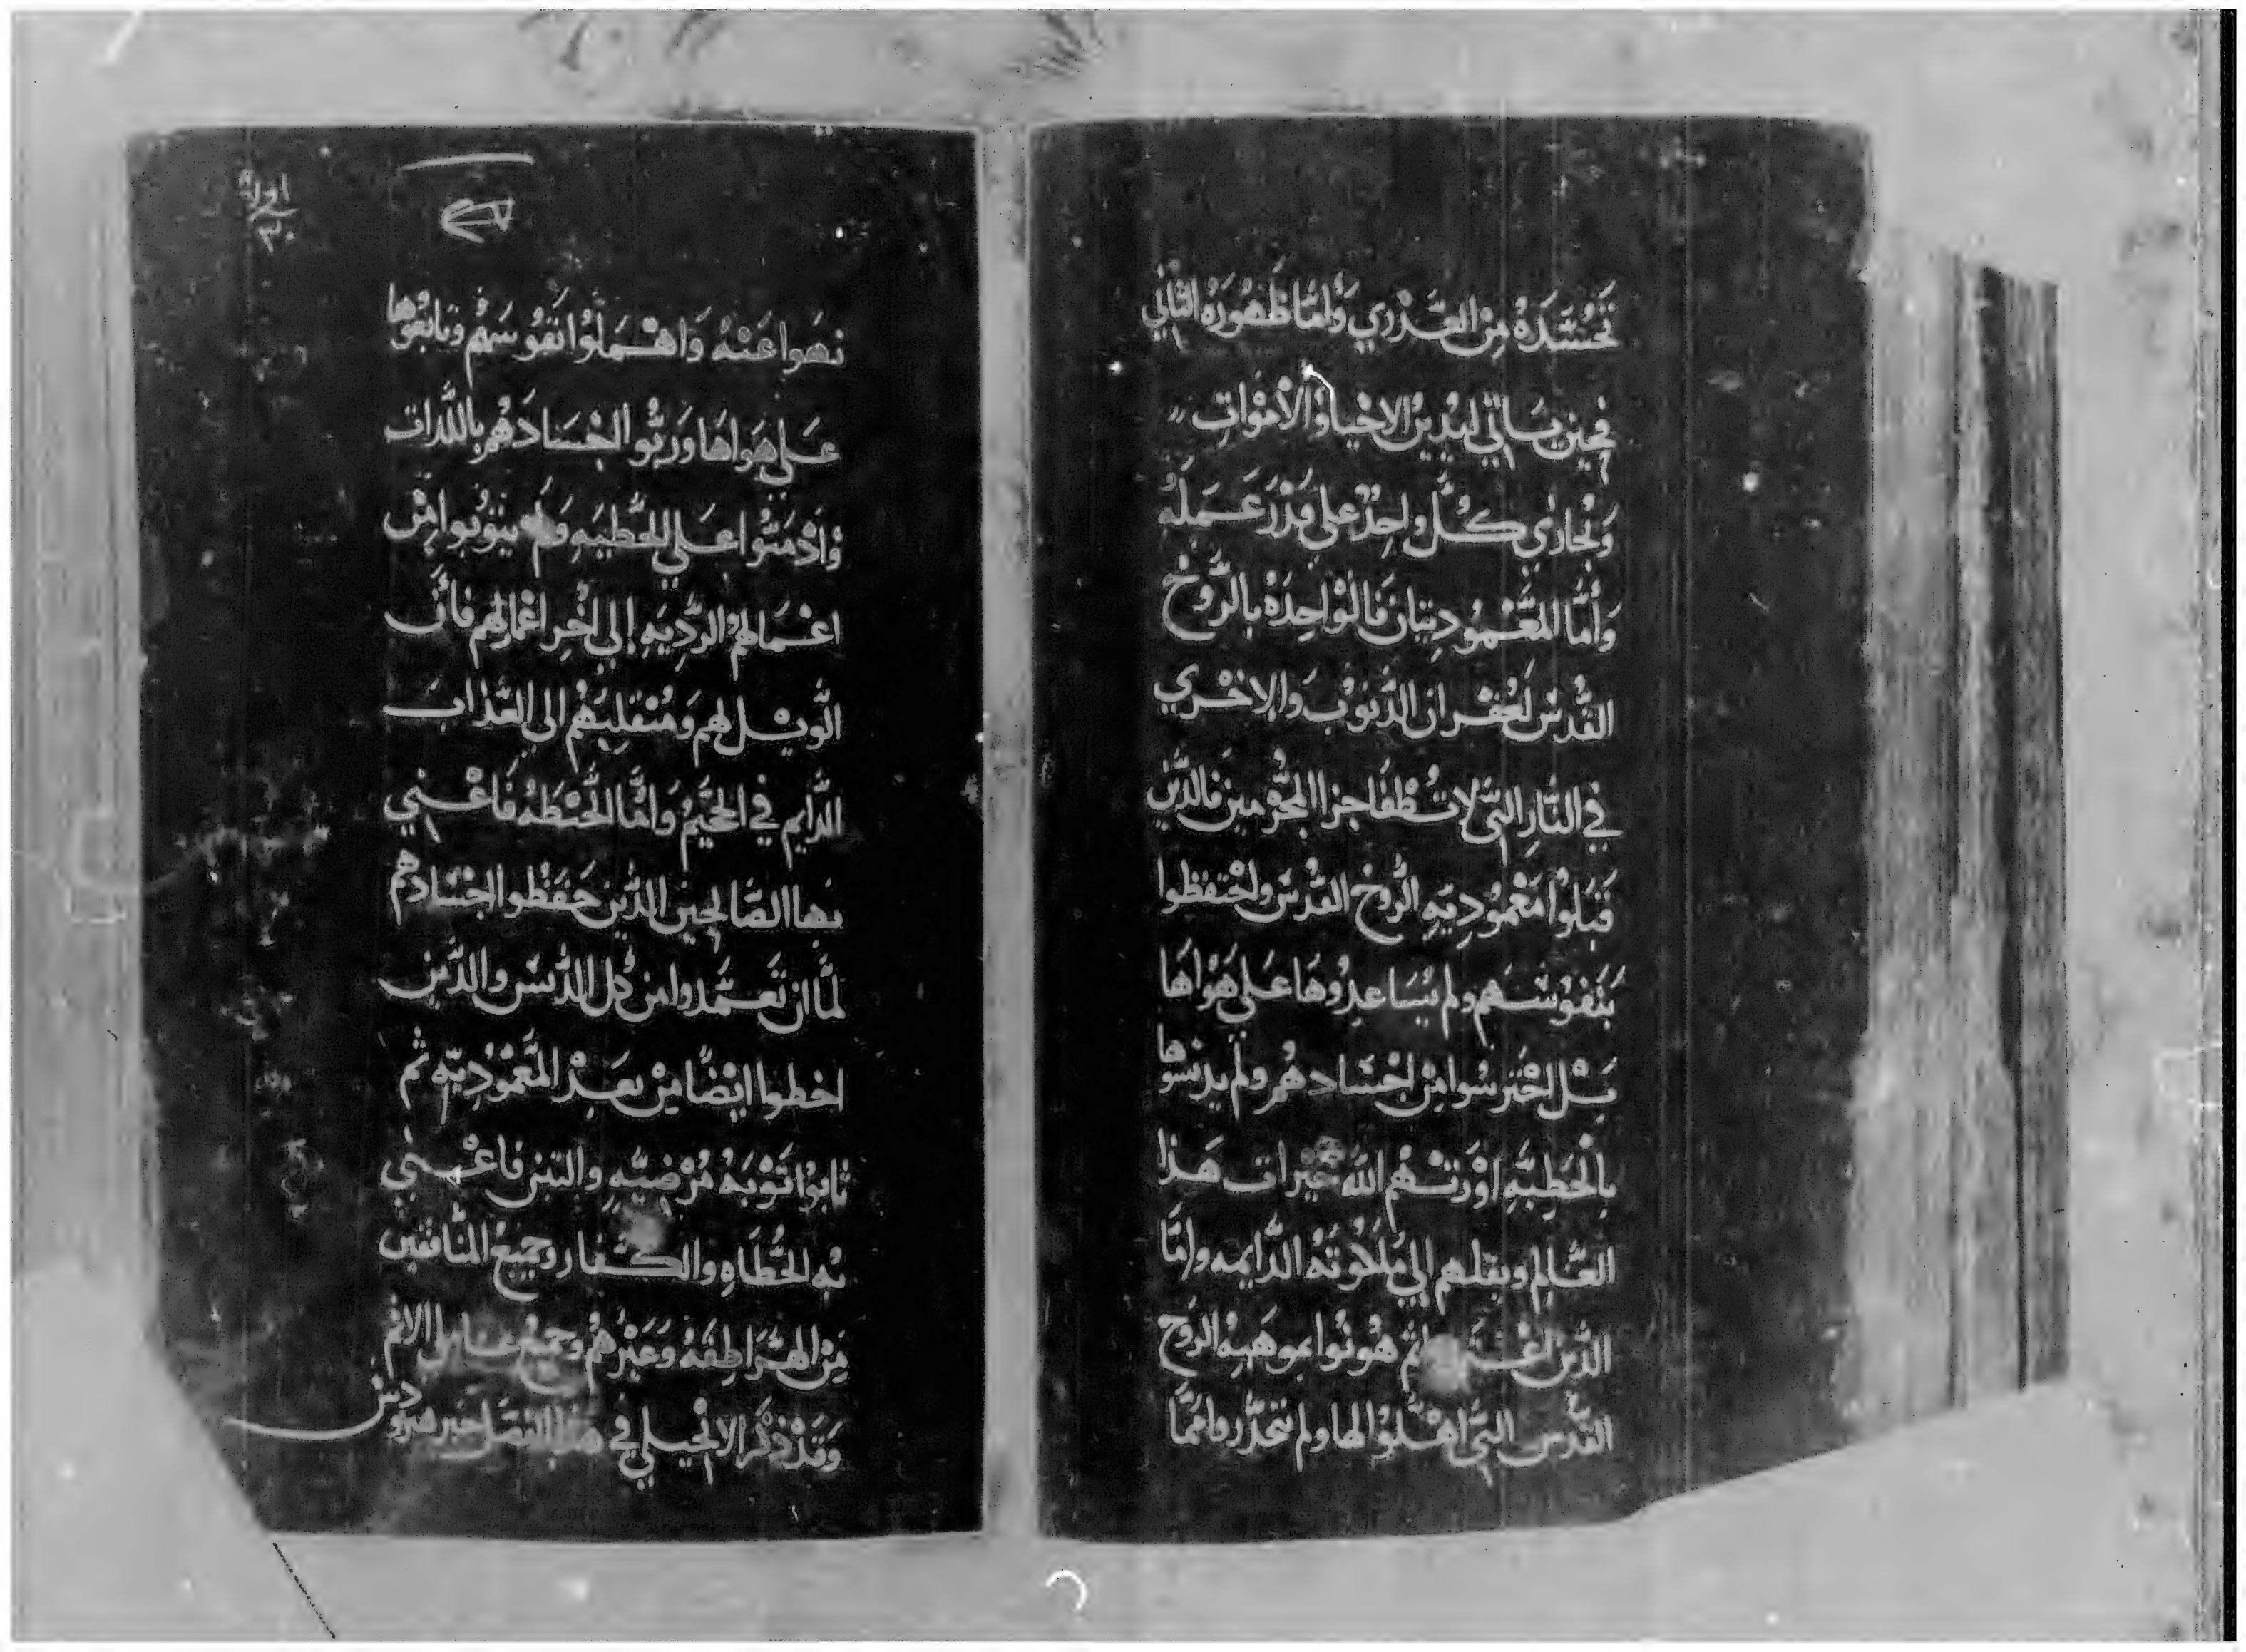 تجسده من العذري واما ظهوره الثاني
فحين ياتي ليدين الاحيا والاموات
ويجازي كل واحد على قدر عمله
واما المعموديتان فالواحده بالروح
القدس لغفران الذنوب والاخري
في النار التي لا تطفا جزا المجرمين فالذين
قبلوا معموديه الروح القدس واحتفظوا
بنفوسهم ولم يساعدوها علي هواها
بل احترسوا من اجسادهم ولم يدنسوها
بالخطيه اورتهم الله خيرات هذا
العالم وينقلهم الي ملكوته الدايمه واما
الذين ثم هونوا بموهبه الروح
القدس التي اهلوا لها ولم يتحذروا مما
اوله
نهوا عنه واهملوا نفوسهم وتابعوها
علي هواها وربوا اجسادهم باللذات
وادمنوا علي الخطيه ولم يتوبوا من
اعمالهم الرديه إلي اخر اعمارهم فان
الويل لهم ومنقلبهم الي العذاب
الدايم في الجحيم واما الحنطه فاعني
بها الصالحين الذين حفظوا اجسادهم
لما ان تعمدوا من كل الدنس والذين
اخطوا ايضا من بعد المعموديه ثم
تابوا توبه مرضيه والتبن فاعني
به الخطاه والكفار وجميع المنافقين
من الهراطقه وغيرهم وجميع عاملي الاثم
وقد ذكر الانجيلي في هذا الفصل خبر هيرودس